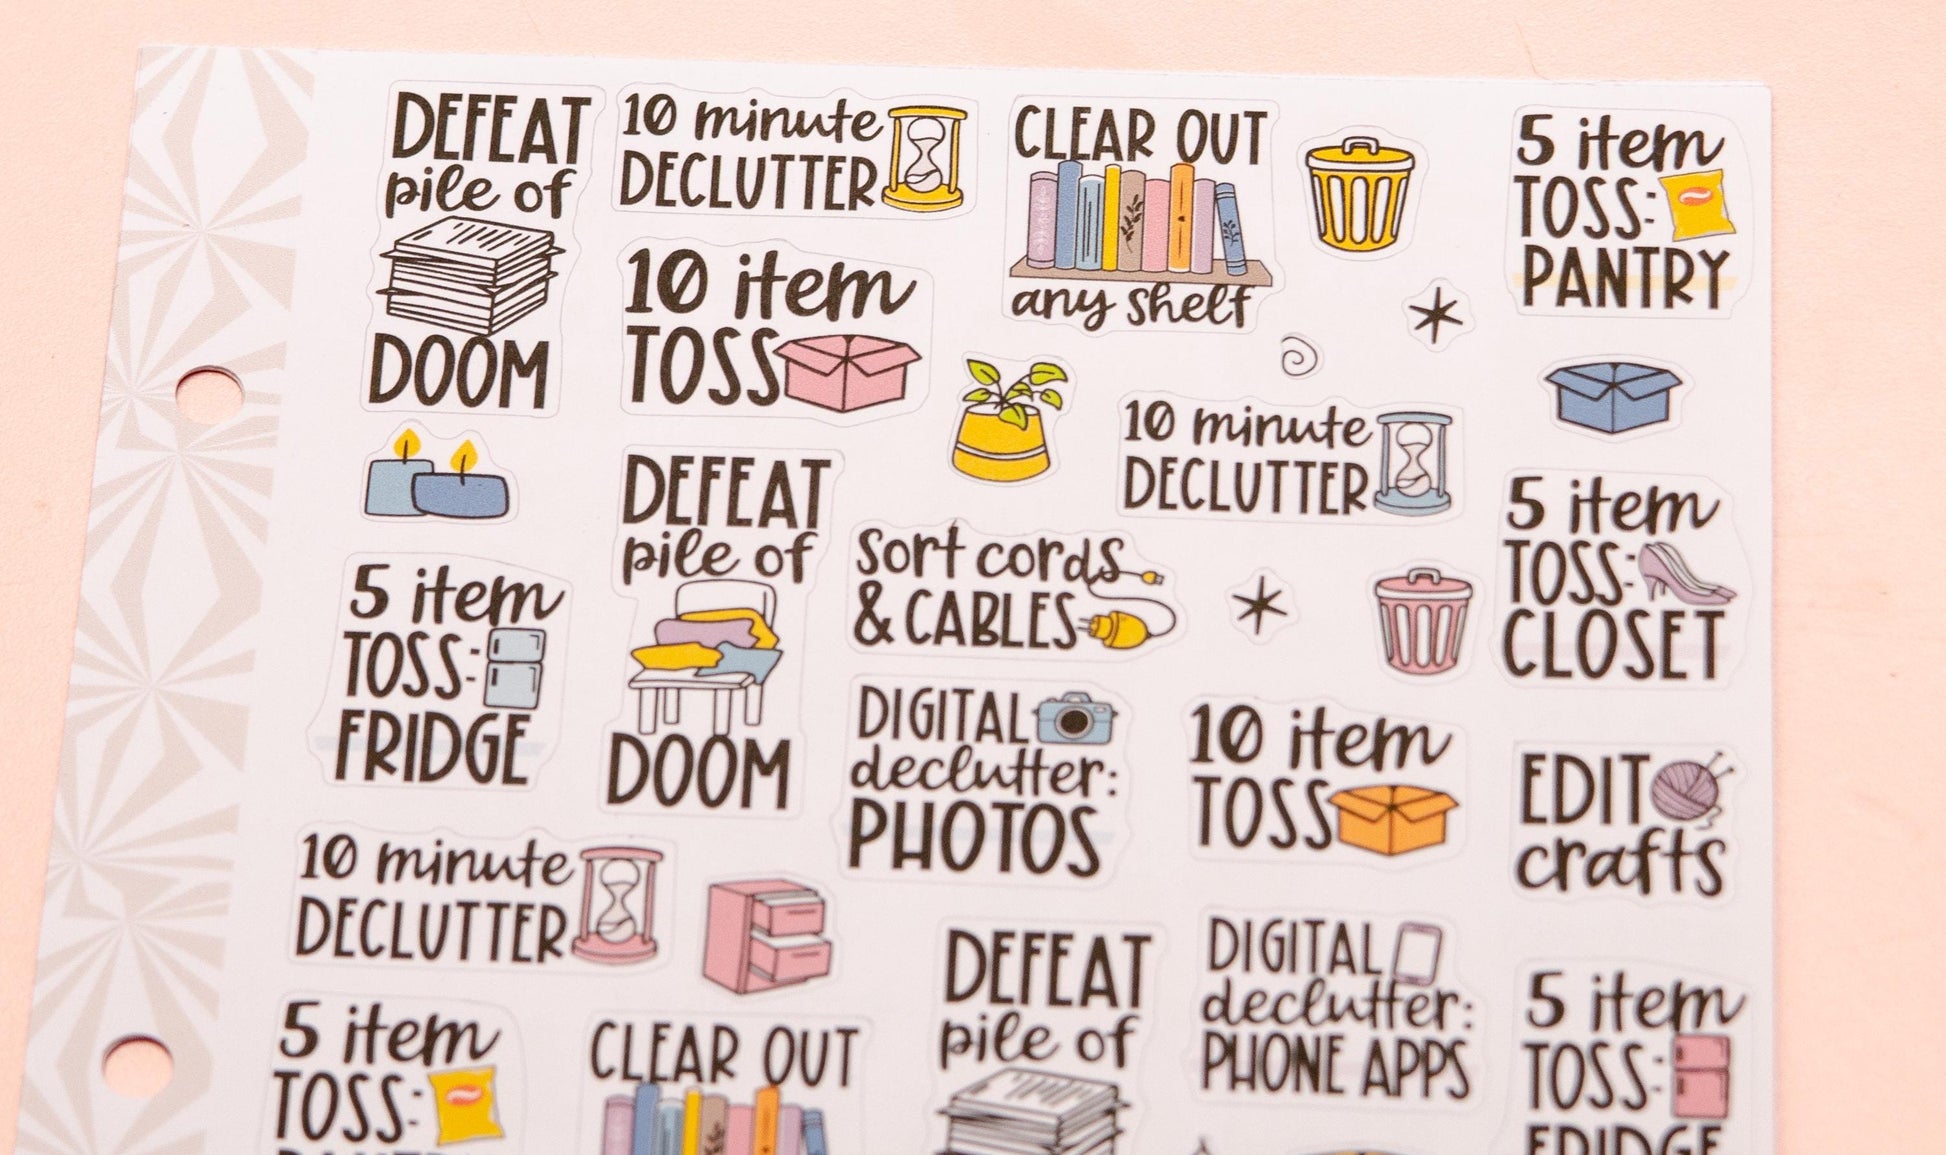 DEFEAT
pile of
DOOM
10 minute
DECLUTTER
CLEAR OUT
any shelf
5 item
TOSS:
PANTRY
10 item
TOSS
10 minute
DECLUTTER
DEFEAT
pile of
DOOM
sort cords
& CABLES
5 item
TOSS:
CLOSET
5 item
TOSS:
FRIDGE
DIGITAL
declutter:
PHOTOS
10 item
TOSS
EDIT
crafts
10 minute
DECLUTTER
DEFEAT
pile of
DIGITAL
declutter:
PHONE APPS
5 item
TOSS:
FRIDGE
5 item
TOSS:
CLEAR OUT